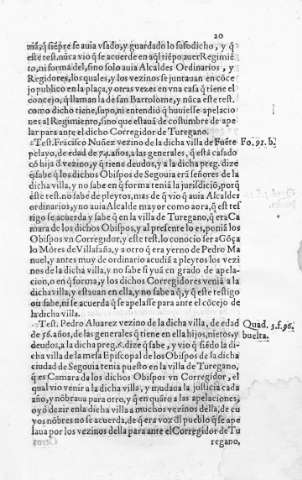 20
uia, q̃ siẽpre se auia vsado, y guardado lo susodicho, y q̃
este test. nũca vio q̃ se acuerde en aql̃ tiẽpo auer Regimiẽ
to, ni forma del, sino solo auia Alcaldes Ordinarios, y
Regidores, los quales, y los vezinos se juntauan en cõce
jo publico en la plaça, y otras vezes en vna casa q̃ tiene el
concejo, q̃ llaman la de san Bartolome, y nũca este test.
como dicho tiene, ni entendió q̃ huuiesse apelacio
nes al Regimiento, sino que estaua de costumbre de ape
lar para ante el dicho Corregidor de Turegano.
Test. Frãcisco Nuñez vezino de la dicha villa de Fuẽte
Fo. 92. b.
pelayo, de edad de 74. años, a las generales, q̃ está casado
cõ hija d̃ vezino, y q̃ tiene deudos, y a la dicha preg. dize
q̃ sabe q̃ los dichos Obispos de Segouia erã señores de la
dicha villa, y no sabe en q̃ forma tenia la jurisdiciõ, porq̃
este test. no sabe de pleytos, mas de q̃ vio q̃ auia Alcalder
ordinarios, y no auia Alcalde mayor como aora, q̃ este tes
tigo se acuerda y sabe q̃ en la villa de Turegano, q̃ era Ca
mara de los dichos Obispos, y al presente lo es, poniá los
Obispos vn Corregidor, y este test. lo conocio ser a Gõça
lo Môtes de Villaraña, y a otro q̃ era yerno de Pedro Ma
nuel, y antes muy de ordinario acudiã a pleytos los vezi
nos de la dicha villa, y no sabe si yuã en grado de apela-
cion, o en q̃ forma, y los dichos Corregidores venia a la
dicha villa, y estauan en ella, y no sabe a q̃, y que este testigo
ou sabe, ni se acuerda q̃ se apelasse para ante el cõcejo de
la dicha villa.
Test. Pedro Aluarez vezino de la dicha villa, de edad
Quad. 3. f. 96.
de 76. años, de las generales q̃ tiene en ella hijos, nietos, y
buelta.
deudos, a la dicha preg. 6. dize q̃ sabe, y vio q̃ siẽdo la di-
cha villa de la mesa Episcopal de los Obispos de la dicha
ciudad de Segouia tenia puesto en la villa de Turegano,
q̃ es Camara de los dichos Obispos vn Corregidor, el
qual vio venir a la dicha villa, y mudaua la justicia cada
año, y nõbraua para otro, y q̃ en quãto a las apelaciones,
oyó dezir en la dicha villa a muchos vezinos della, de cu
yos nõbres no se acuerda, de q̃ era voz d̃l pueblo q̃ se ape
laua por los vezinos della para ante el Corregidor de Tu
regano,